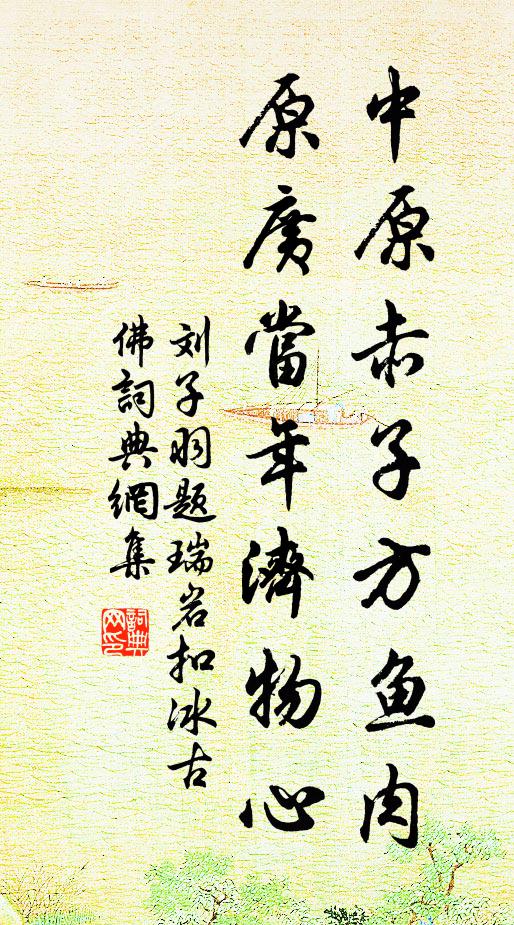 中原赤子方鱼肉
原廣當年濟物心
刘子羽题瑞岩扣冰古
佛詞典網集
詞典网印